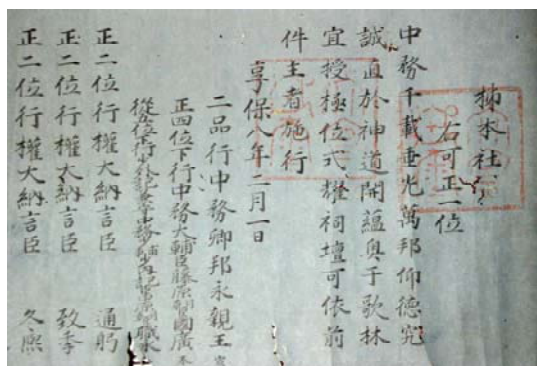 柿本社
右可正一位
中務千載垂光萬邦仰德究
誠直於神道開蘊奥于歌林
宜授極位式耀祠壇可依前
件主者施行
享保八年二月一日
二品行中務卿邦永親王宣
正四位下行中務大輔臣藤原朝臣國廣奉
正二位行權大納言臣 通躬
正二位行權大納言臣 致季
正二位行權大納言臣 冬熈